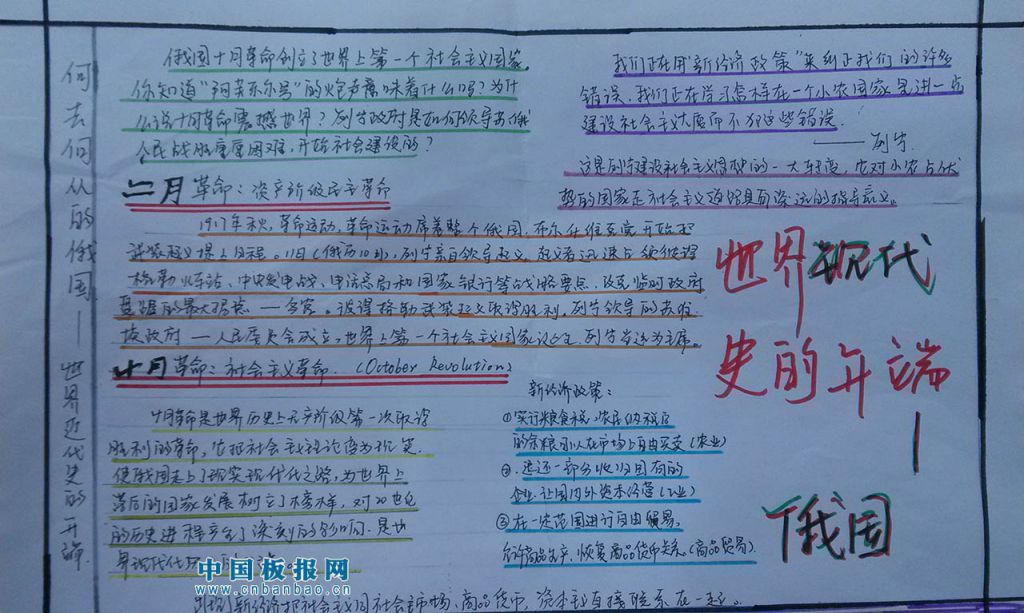 何去何从的俄国——世界近代史的开端
俄国十月革命创立了世界上第一个社会主义国家,
你知道"阿芙乐尔号"的炮声意味着什么吗?为什
么说十月革命震撼世界?列宁政府是如何领导苏俄
人民战胜重重困难,开始社会建设的?
二月革命:资产阶级民主革命
1917年秋,革命运动,革命运动席卷整个俄国,布尔什维克党开始把
武装起义提上日程。11日(俄历10月),列宁亲自领导起义,起义者迅速占领彼得
格勒火车站、中央发电战、电话总局和国家银行等战略要点,改克临时政府
盘踞的最大据点——冬宫。彼得格勒武装起义取得胜利,列宁领导的苏维
埃政府——人民委员会成立,世界上第一个社会主义国家诞生,列宁当选为主席。
十月革命:社会主义革命.(October Revolution)
十月革命是世界历史上无产阶级第一次取得
胜利的革命,它把社会主义理论变为现实.
使俄国走上了现实现代化之路,为世界上
落后的国家发展树立了榜样,对20世纪
的历史进程产生了深刻的影响.是世
界现代化
中国板报网
www.cnbanbao.cn
新经济把社会主义同社会市场、商品货币,资本主义直接联系在一起。
我们正在用"新经济政策"来纠正我们的许多
错误,我们正在学习怎样在一个小农国家里进一步
建设社会主义大厦而不犯这些错误.
——列宁
这是列宁建设社会主义思想的一大转变,它对小农占优
势的国家走社会主义道路具有深远的指导意义。
世界现代
史的开端
——
俄国
新经济政策:
①实行粮食税,农民纳税后
的余粮可以在市场上自由买卖(农业)
②.退还一部分收归国有的
企业.让国内外资本经营(工业)
③在一定范围进行自由贸易,
允许商品生产、恢复商品货币关系.(商品贸易)